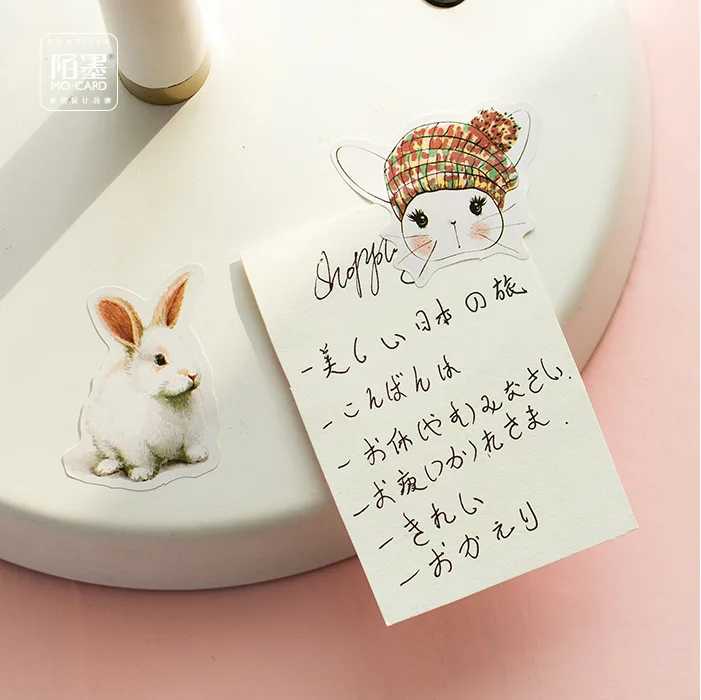 陌墨
MO·CARD
Shoppi
-美しい日本の旅
-こんばんは
-お休(やす)みなさい.
-お疲(つか)れさま.
-きれい
-おかえり